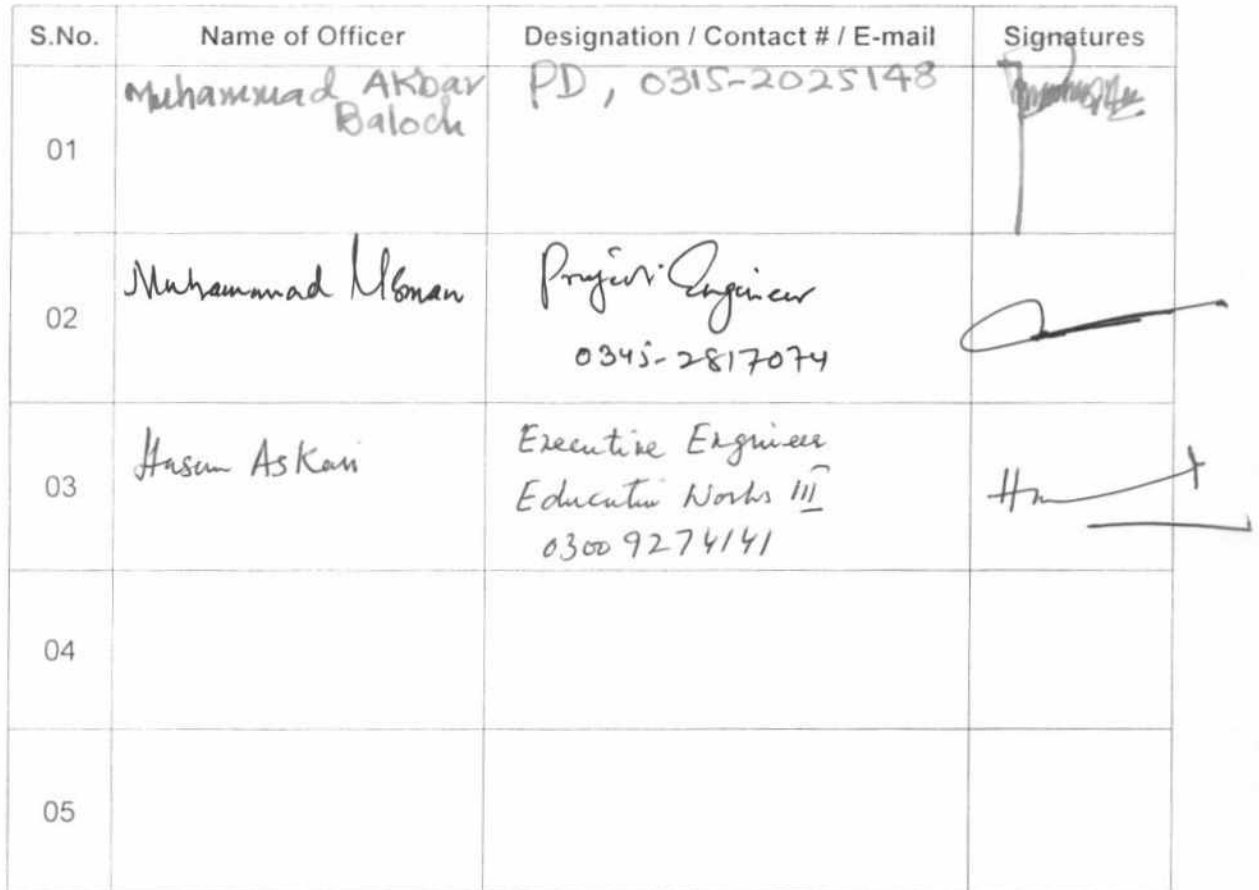 S.No. Name of Officer Designation / Contact # / E-mail Signatures
01 Muhammad Akbar PD, 0315-2025148
Baloch
02 Muhammad Usman Project Engineer
0345-2817074
03 Hasan Askari Executive Engineer
Education Works III
0300 9274141
04
05